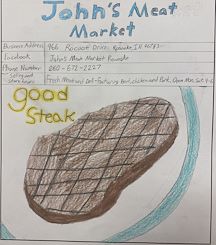 John's Meat
Market
Business Address 966 Racoon Drive, Roanoke, IN 46783
Facebook John's Meat Market Roanoke
Phone Number 260-672-2227
Selling and
Store hours Fresh Meat and Deli-Featuring Beef, chicken and Pork. Open Mon.-Sat. 9-6
good
Steak